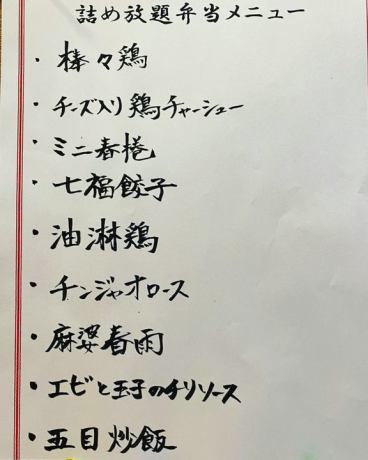 詰め放題弁当メニュー
・棒々鶏
・チーズ入り鶏チャーシュー
・ミニ春捲
・七福餃子
・油淋鶏
・チンジャオロース
・麻婆春雨
・エビと玉子のチリソース
・五目炒飯